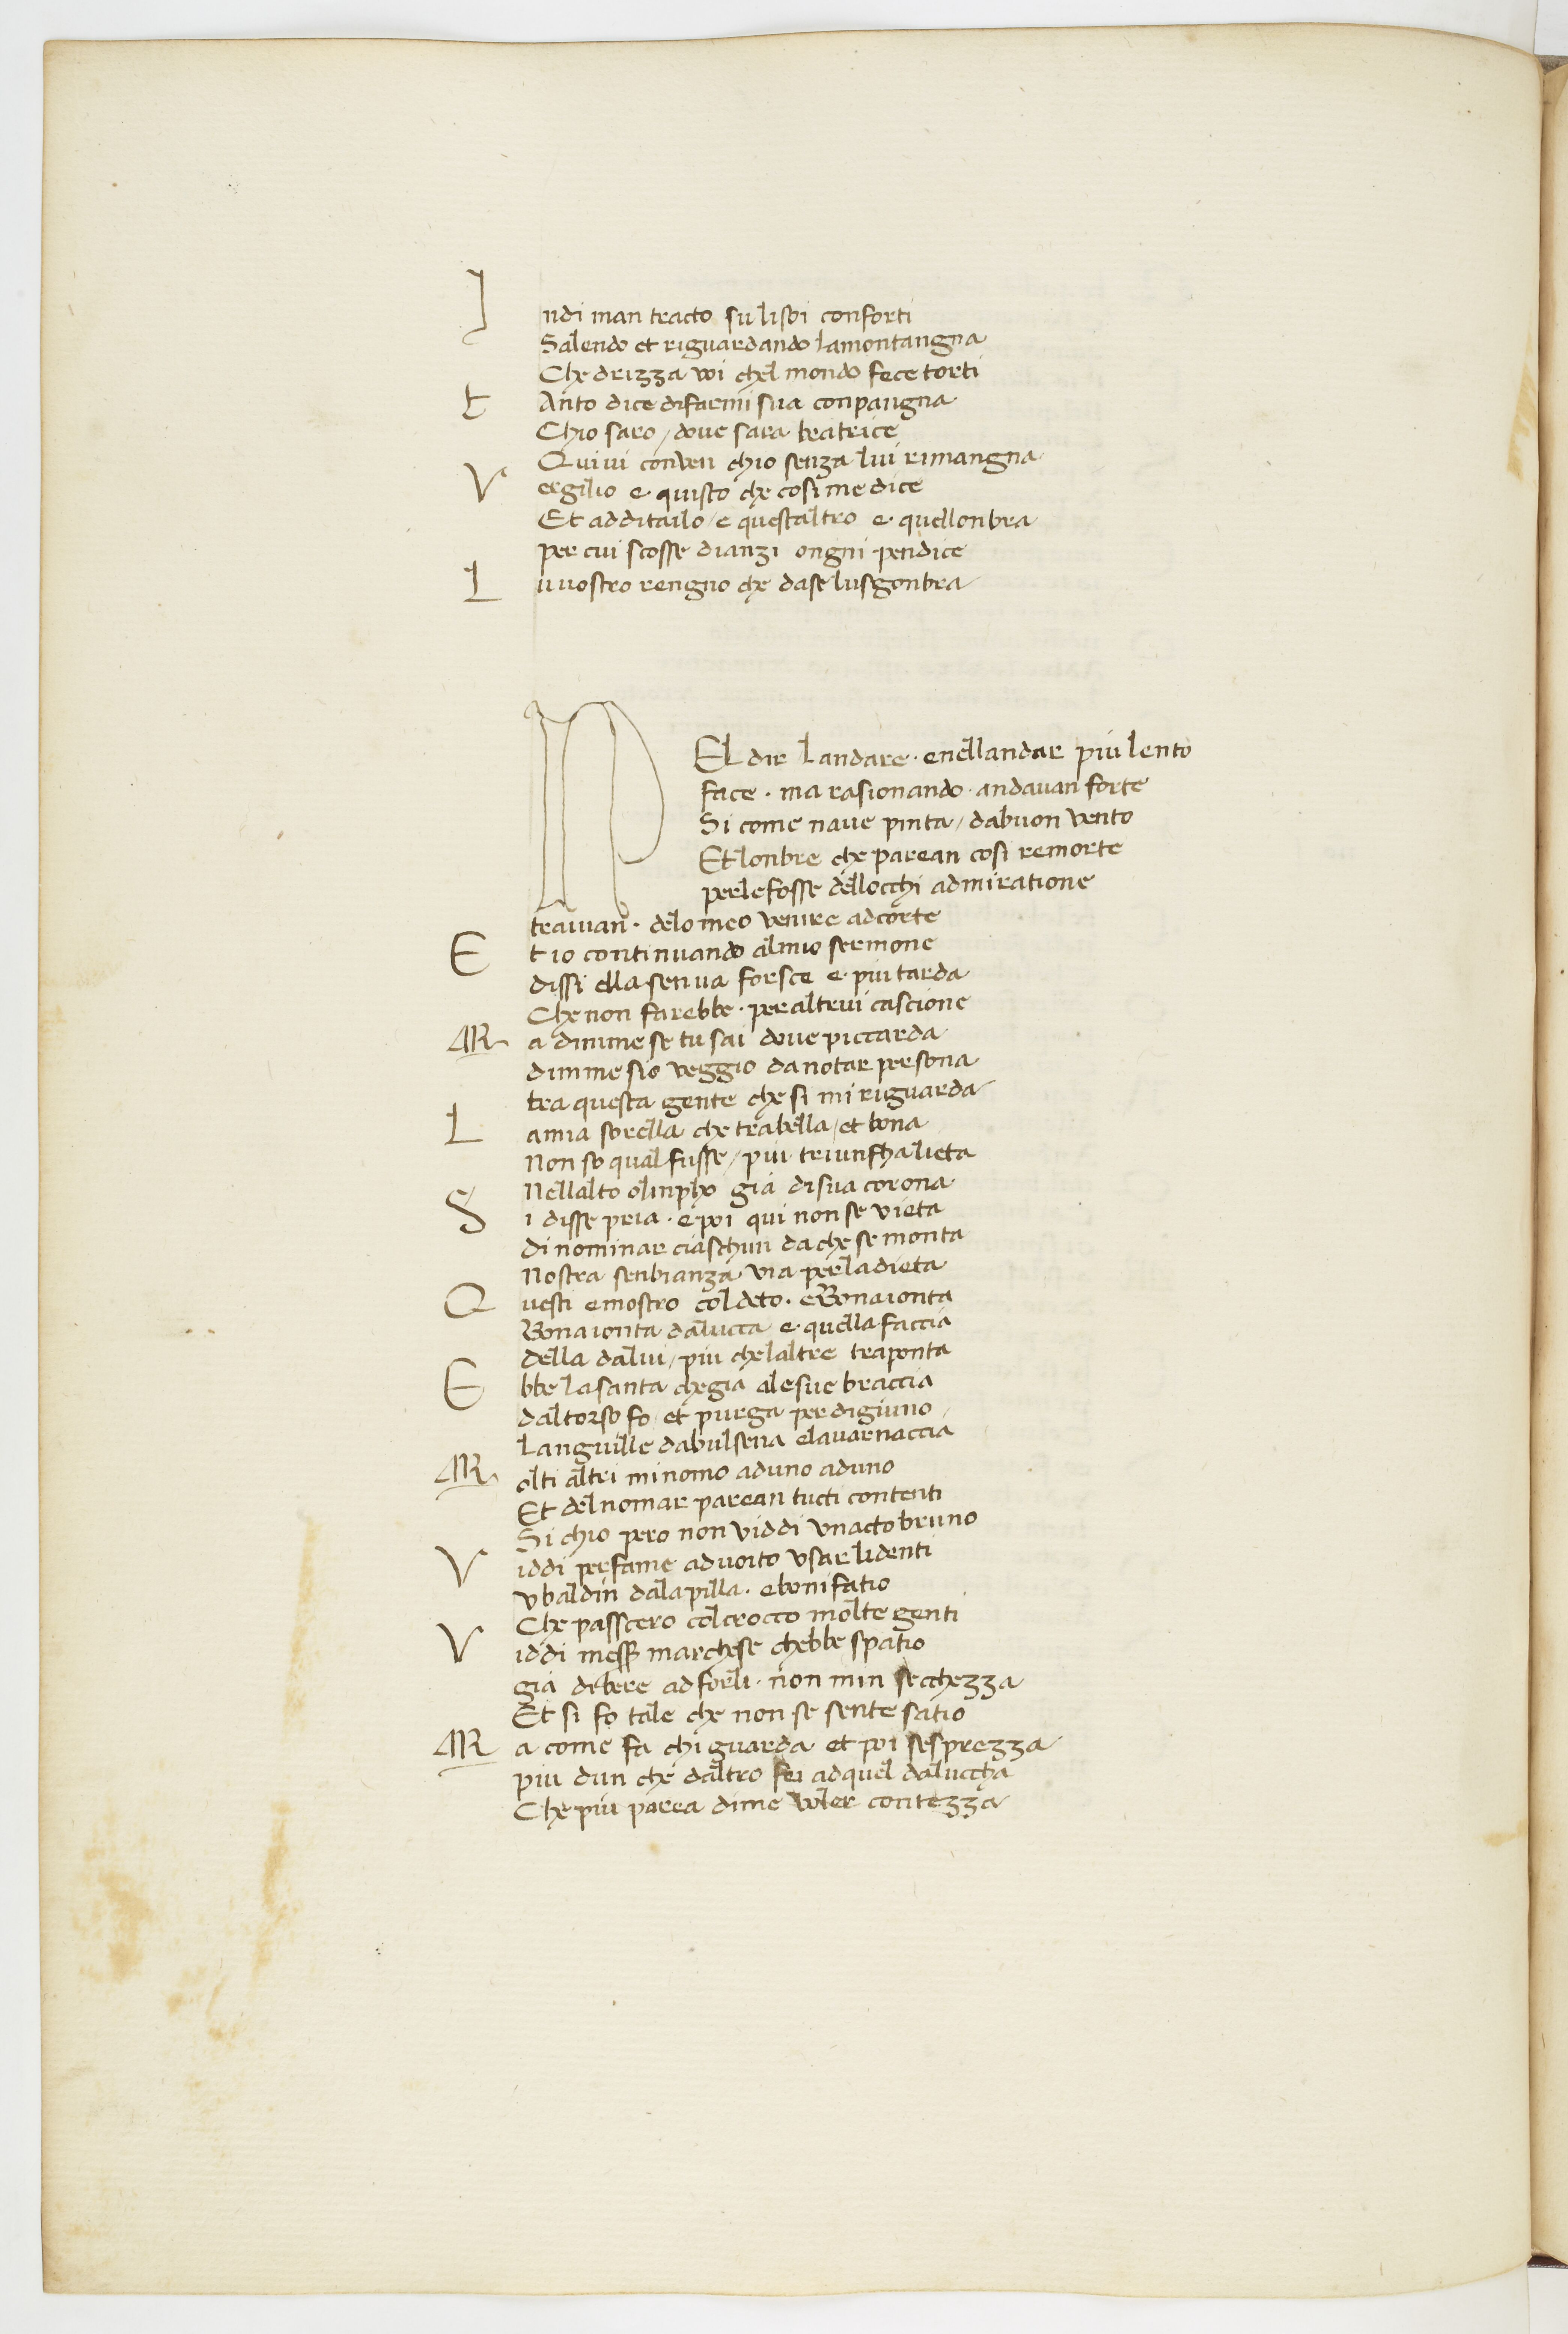 I ndi man tracto su lisoi conforti
Salendo et riguardando lamontangna
Che drizza voi chel mondo fece torti
t Anto dice difarmi sua conpangna
Chio saro / dove sara beatrice
Quivi conven chio senza lui rimangna
V ergilio e quisto che cosi me dice
Et additailo / e questaltro e quellonbra
per cui scosse dianzi ongni pendice
L u vostro rengno che dase lusgonbra
N El dir landare · enellandar piu lento
face · ma rasionando · andavan forte
Si come nave pinta / dabuon vento
Et lonbre che parean cosi remorte
perlefosse dellocchi admiratione
traivan · delo meo venire adcorte
E t io continuando almio sermone
dissi ella senva forsce e piu tarda
Che non farebbe · per altrui cascione
M a dimme se tu sai dove piccarda
dimme sio veggio danotar persona
tra questa gente che si mi riguarda
L amia sorella che trabella / et bona
Non so qual fusse / piu triunfha lieta
Nellalto olinpho gia disua corona
S i disse pria · e poi qui non se vieta
di nominar ciaschun da che se monta
Nostra senbianza via perladieta
Q uesti emostro col deto · e Bonaionta
Bonaionta dalucca e quella faccia
della dalui / piu chelaltre traponta
E bbe lasanta chegia alesue braccia
daltorso fo / et purga per digiuno
languille dabulsena elavarnaccia
M olti altri minomo aduno aduno
Et delnomar parean tucti contenti
Si chio pero non viddi vnacto bruno
V iddi perfame advoito vsar lidenti
vbaldin dalapilla · ebonifatio
Che passcero colcrocco molte genti
V iddi mess marchese chebbe spatio
gia debere ad forli · non min secchezza
Et si fo tale che non se sente satio
M a come fa chi guarda et poi sesprezza
piu dun che daltro fei adquel daluccha
Che piu parea dime voler contezza